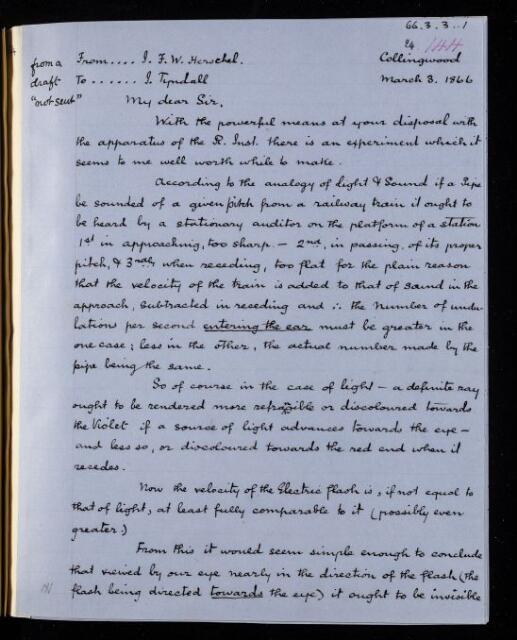 66.3.3..1
24 144
from a From.... J. F. W. Herschel. Collingwood
draft To...... J. Tyndall March 3. 1866
"not sent" My dear Sir,
With the powerful means at your disposal with
the apparatus of the R. Inst. there is an experiment which it
seems to me well worth while to make.
According to the analogy of Light & Sound if a Pipe
be sounded of a given pitch from a railway train it ought to
be heard by a stationary auditor on the platform of a station
1st in approaching, too sharp. – 2nd, in passing, of its proper
pitch, & 3rdly when receding, too flat for the plain reason
that the velocity of the train is added to that of sound in the
approach, subtracted in receding and ∴ the number of undu-
lations per second entering the ear must be greater in the
one case; less in the other, the actual number made by the
pipe being the same.
So of course in the case of light – a definite ray
ought to be rendered more refrangible or discoloured towards
the Violet if a source of light advances towards the eye –
and less so, or discoloured towards the red end when it
recedes.
Now the velocity of the Electric flash is, if not equal to
that of light, at least fully comparable to it (possibly even
greater.)
From this it would seem simple enough to conclude
that viewed by our eye nearly in the direction of the flash (the
flash being directed towards the eye) it ought to be invisible